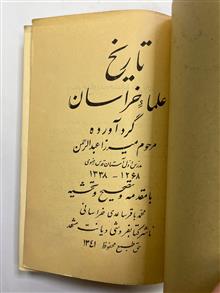 تاریخ
علماء خراسان
گردآورده
مرحوم میرزا عبدالرحمن
مدرس اول آستان قدس رضوی
۱۲۶۸ - ۱۳۳۸
با مقدمه و تصحیح و تحشیه
محمد باقر ساعدی خراسانی
ناشر کتابفروشی دیانت مشهد
حق طبع محفوظ ۱۳۴۱